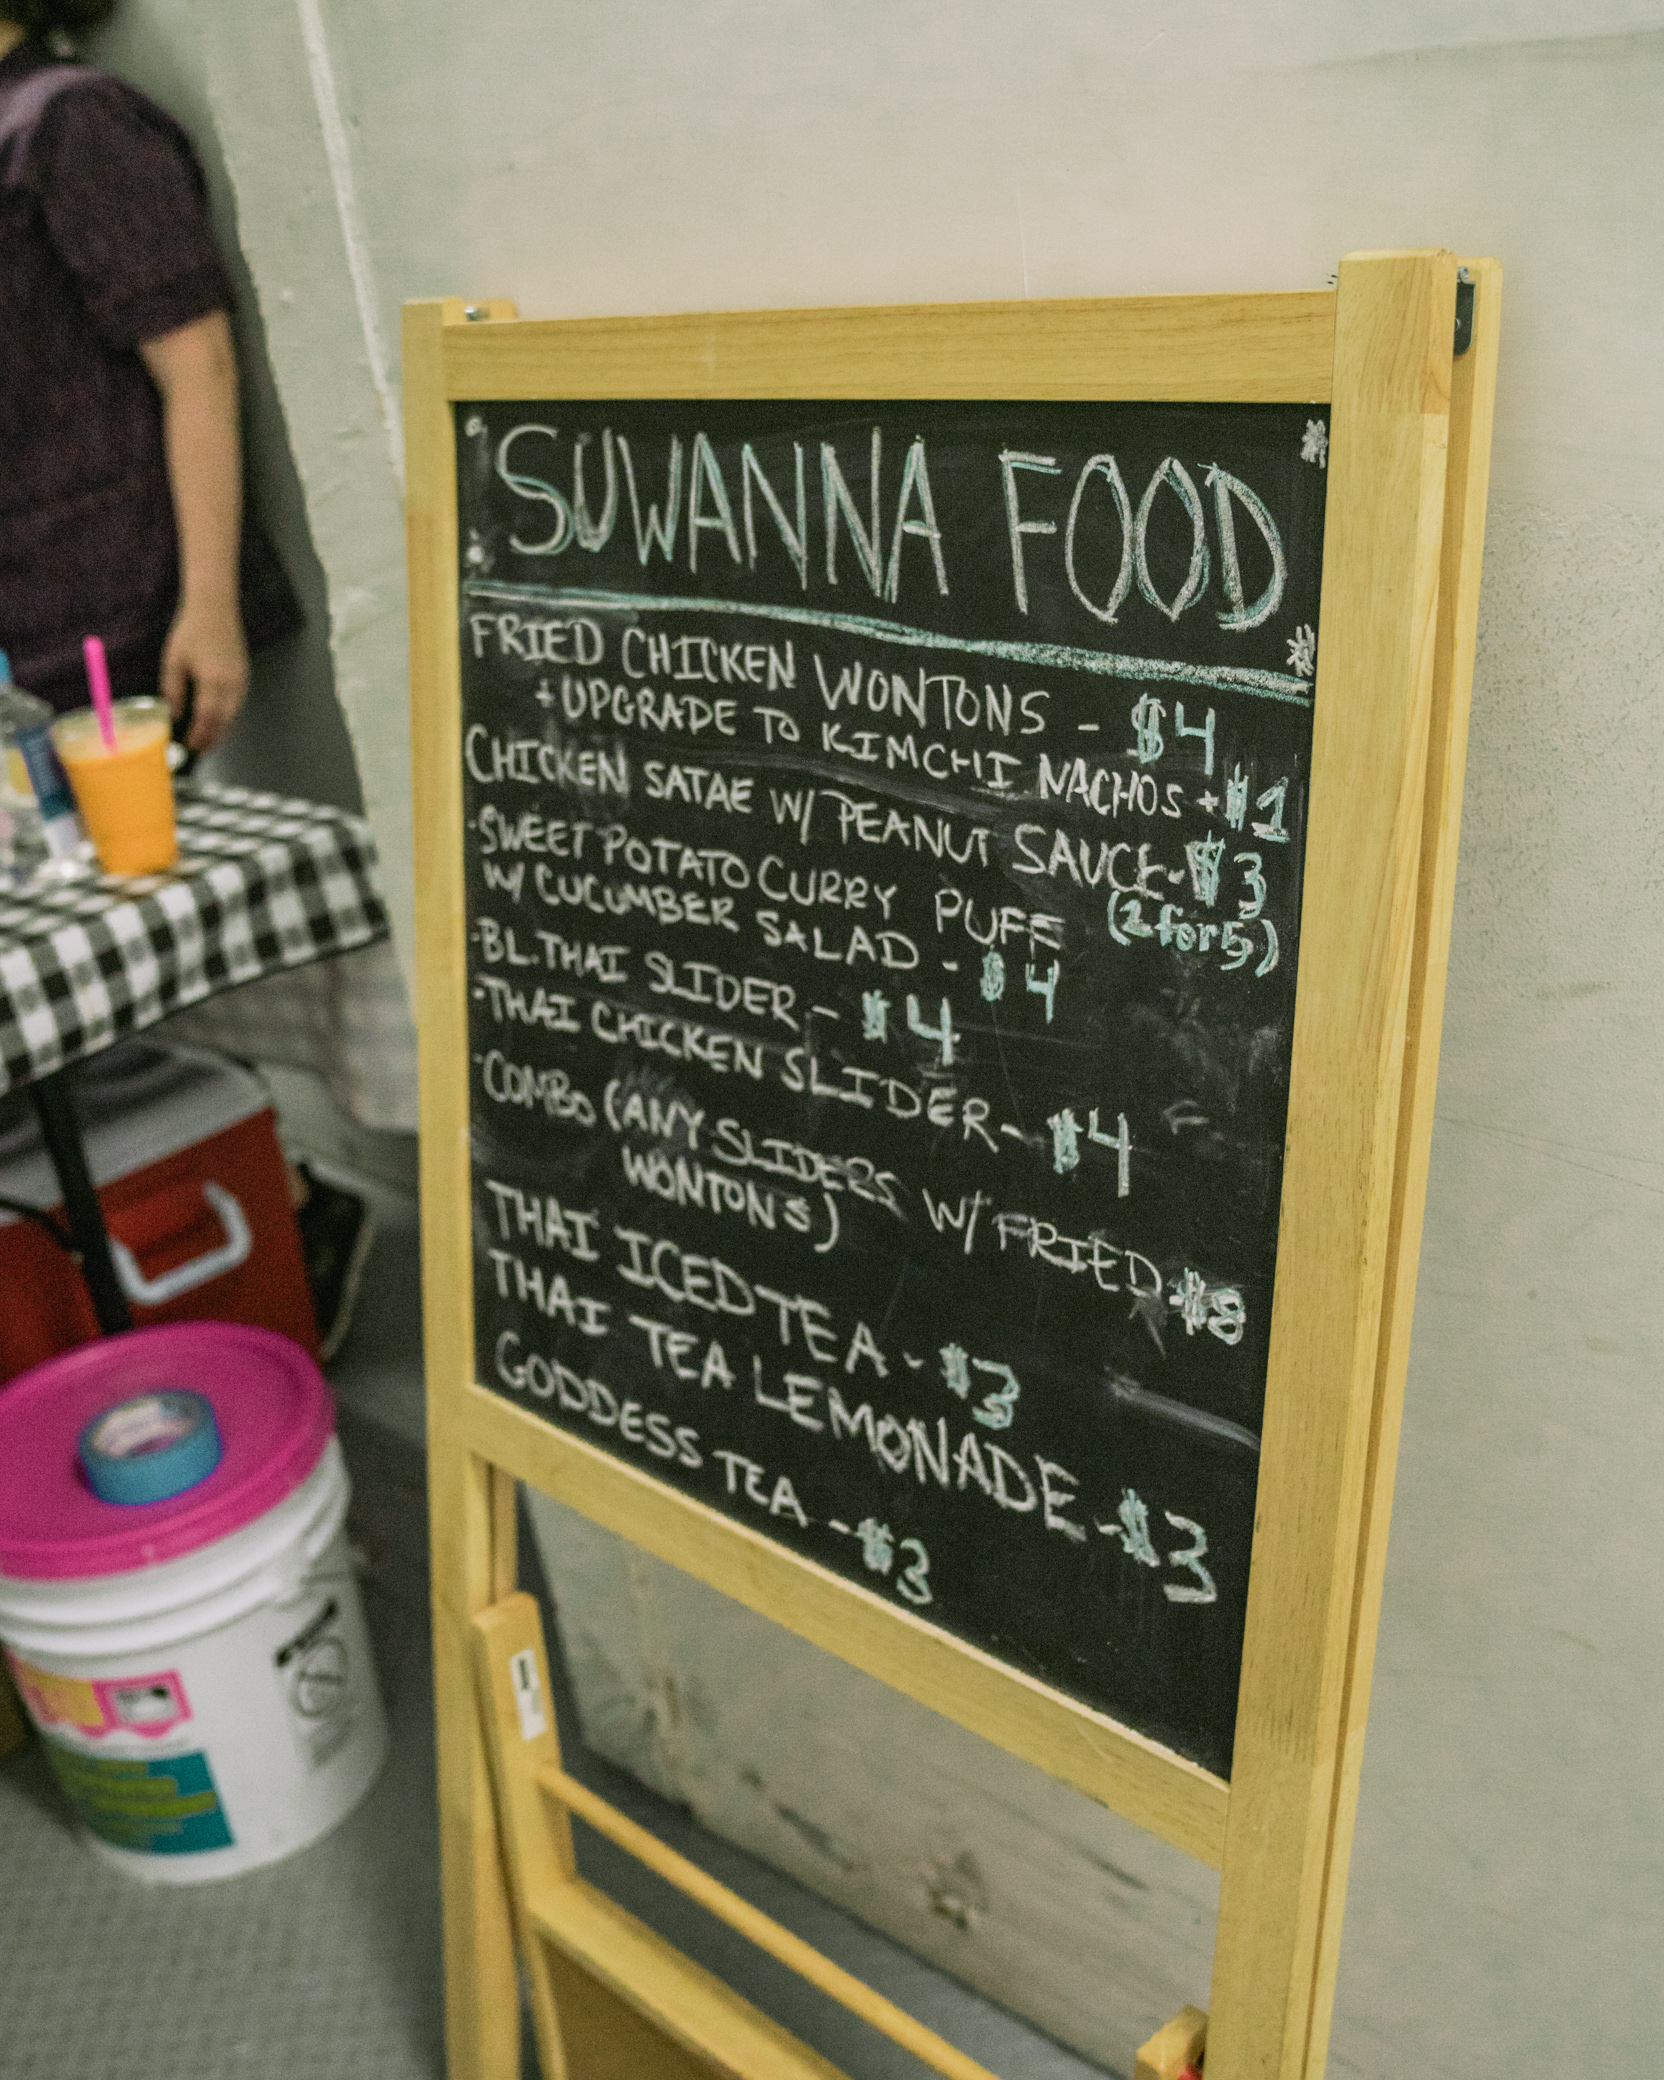 SUWANNA FOOD
FRIED CHICKEN WONTONS - $4
+ UPGRADE TO KIMCHI NACHOS + $1
CHICKEN SATAE W/ PEANUT SAUCE - $3
(2 for 5)
- SWEET POTATO CURRY PUFF
W/ CUCUMBER SALAD - $4
- BL.THAI SLIDER - $4
- THAI CHICKEN SLIDER - $4
- COMBO (ANY SLIDERS W/ FRIED $8
WONTONS)
THAI ICED TEA - $3
THAI TEA LEMONADE - $3
GODDESS TEA - $3